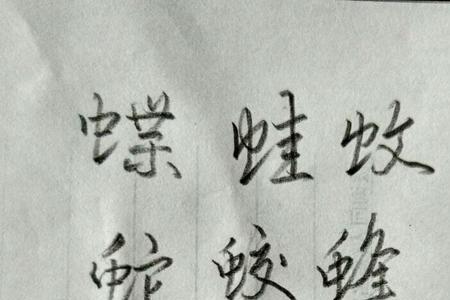 蝶蛙蚊
蛇蛟蜂